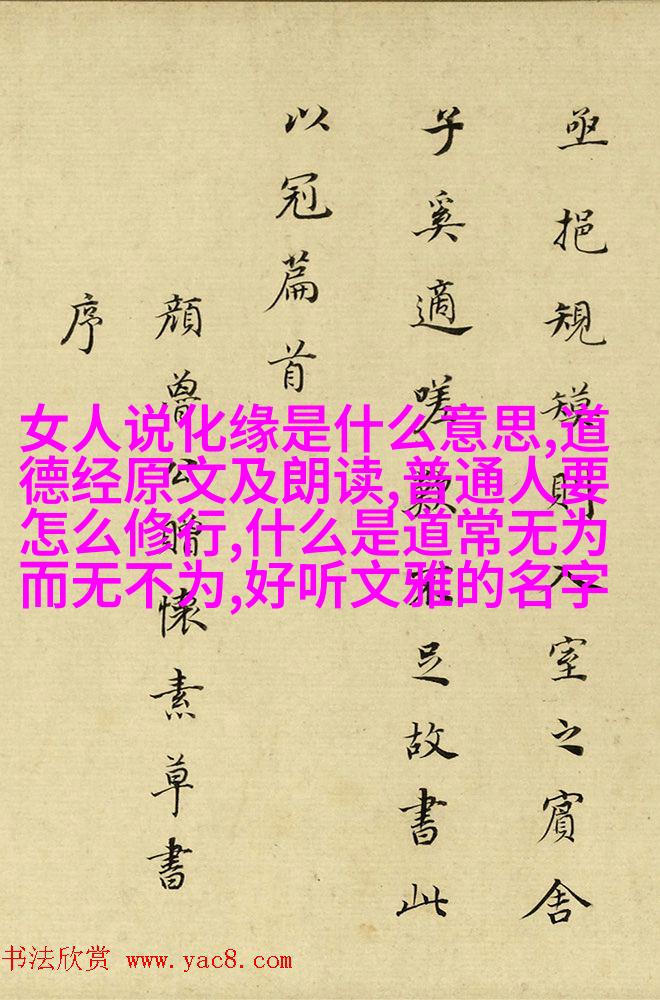 亟挹規模則入室之賔舍
子奚適嗟歎不足故書此
以冠篇首
顔魯公贈懷素草書
序
女人说化缘是什么意思,道
德经原文及朗读,普通人要
怎么修行,什么是道常无为
而无不为,好听文雅的名字
书法欣赏 www.yac8.com